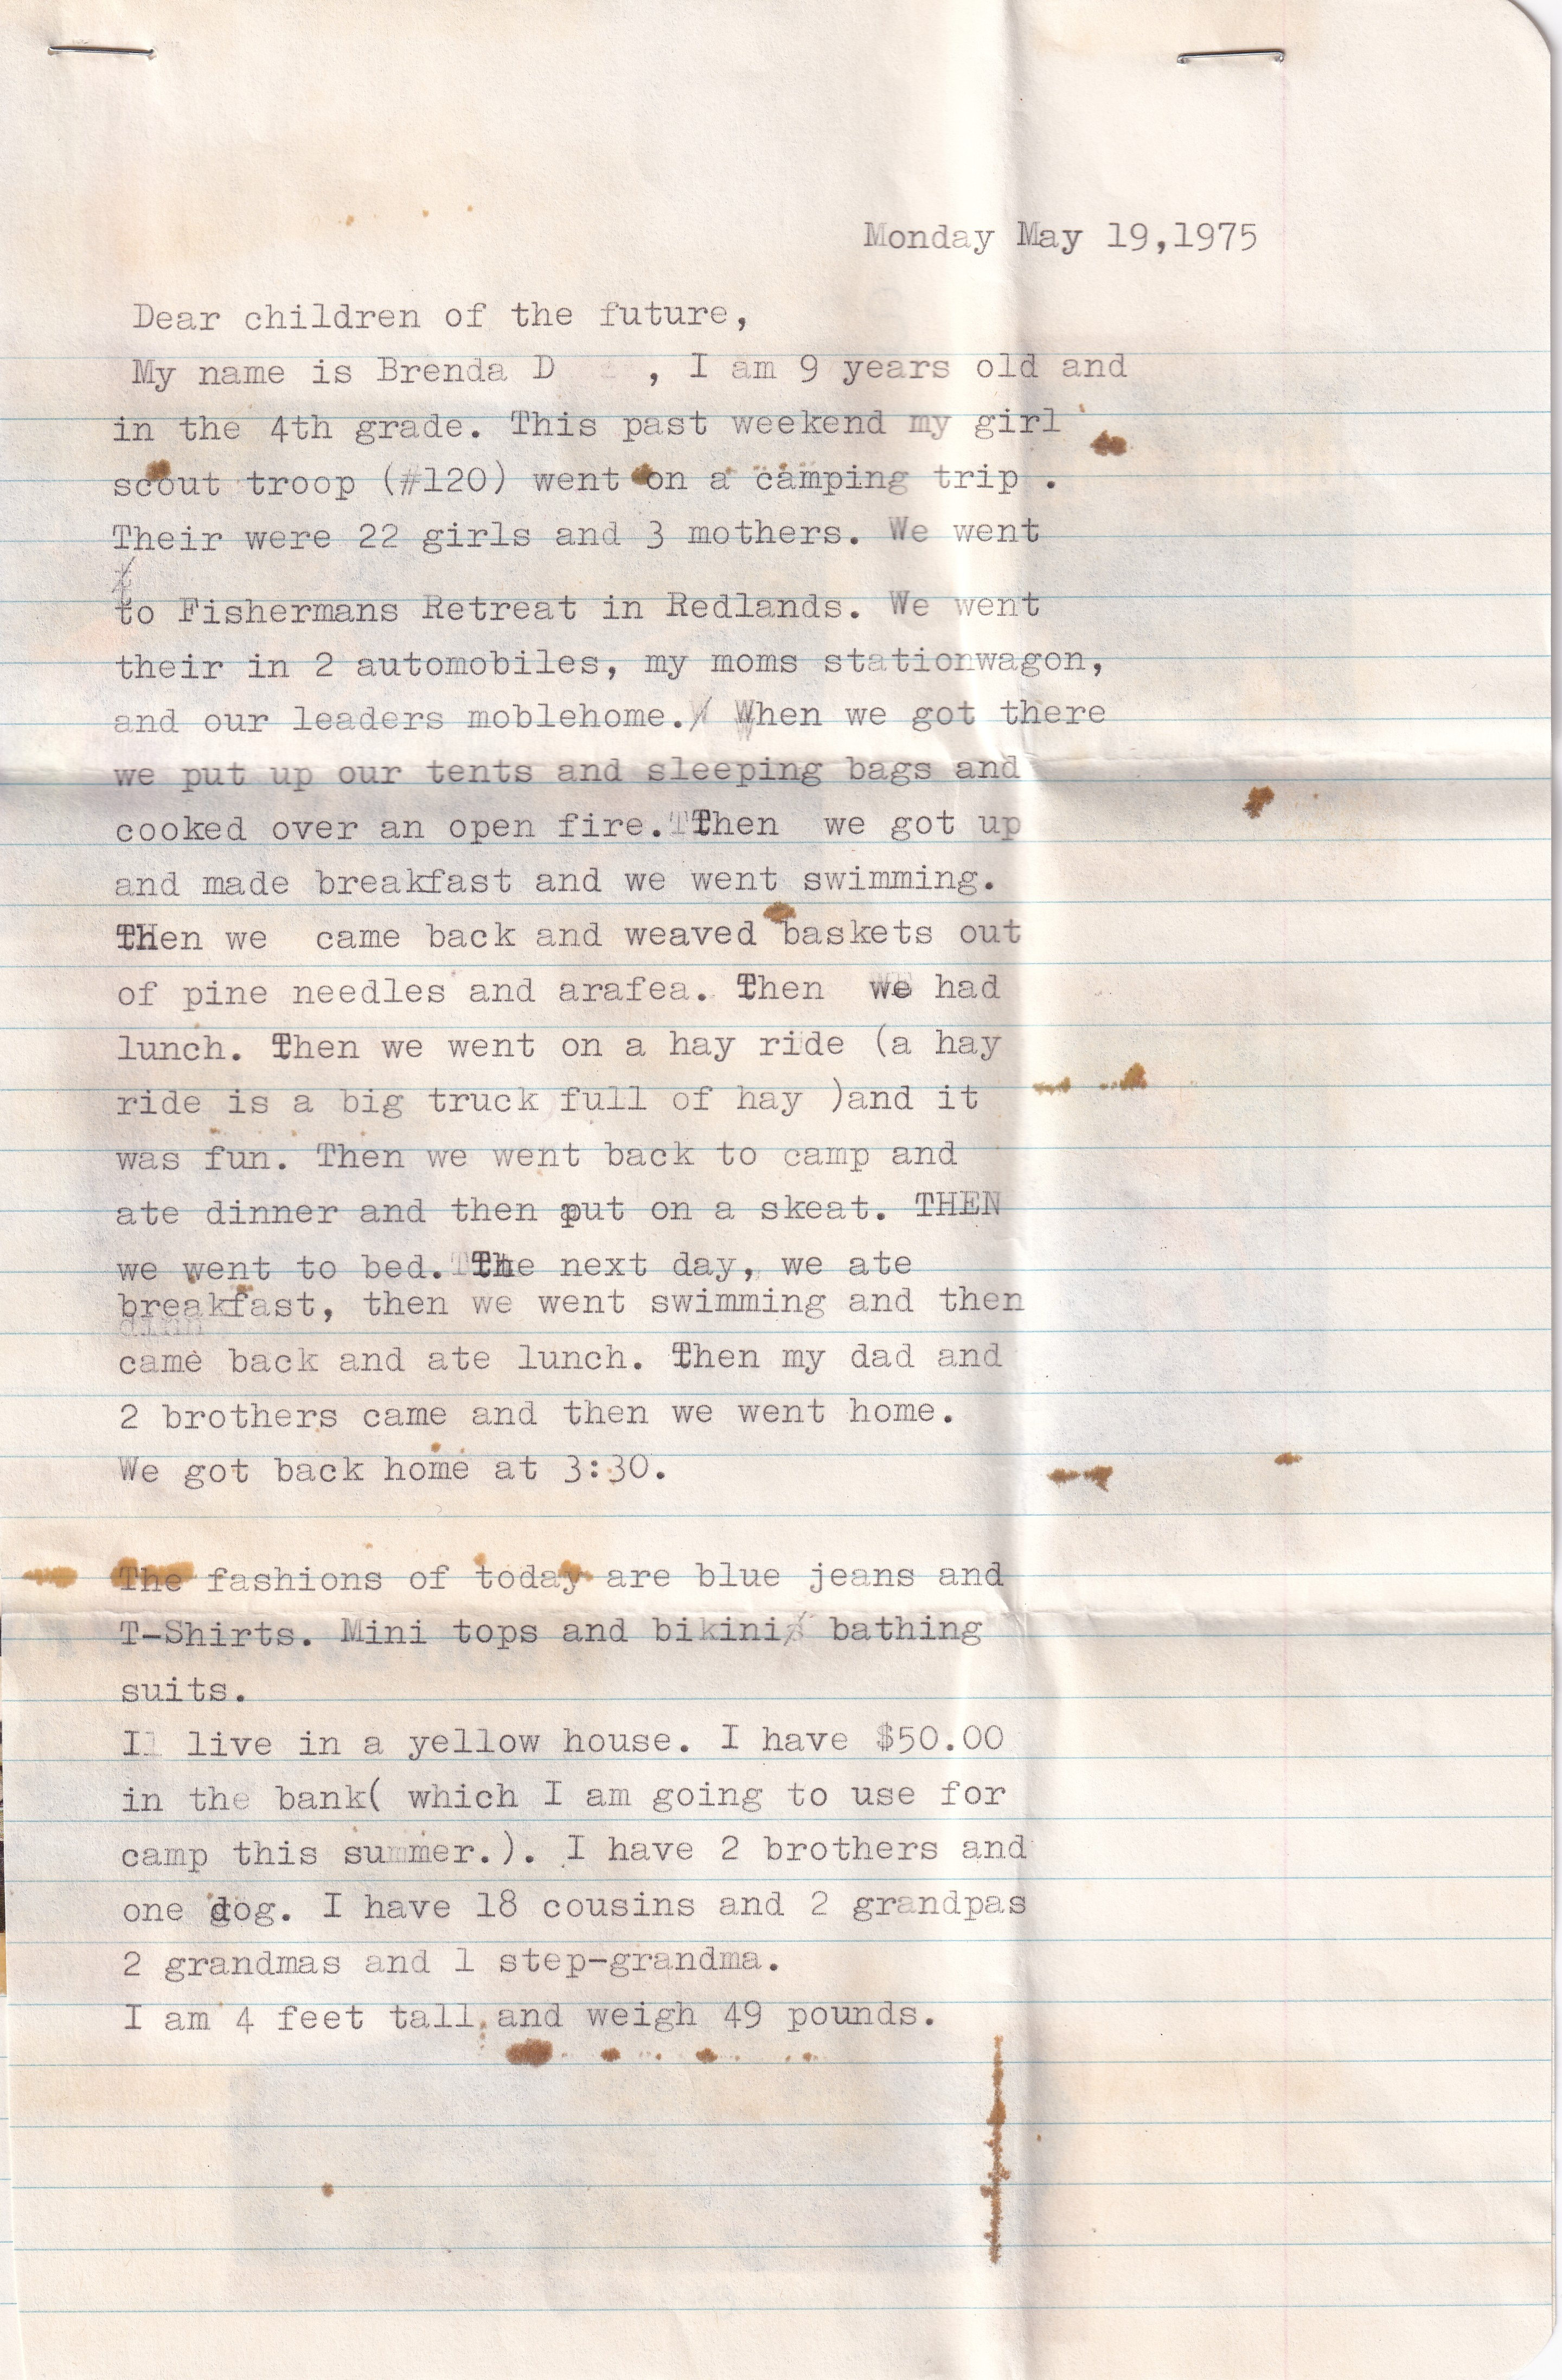 Monday May 19,1975
Dear children of the future,
My name is Brenda D , I am 9 years old and
in the 4th grade. This past weekend my girl
scout troop (#120) went on a camping trip .
Their were 22 girls and 3 mothers. We went
to Fishermans Retreat in Redlands. We went
their in 2 automobiles, my moms stationwagon,
and our leaders moblehome. When we got there
we put up our tents and sleeping bags and
cooked over an open fire. Then we got up
and made breakfast and we went swimming.
Then we came back and weaved baskets out
of pine needles and arafea. Then we had
lunch. Then we went on a hay ride (a hay
ride is a big truck full of hay )and it
was fun. Then we went back to camp and
ate dinner and then put on a skeat. THEN
we went to bed. The next day, we ate
breakfast, then we went swimming and then
came back and ate lunch. Then my dad and
2 brothers came and then we went home.
We got back home at 3:30.
The fashions of today are blue jeans and
T-Shirts. Mini tops and bikini bathing
suits.
I live in a yellow house. I have $50.00
in the bank( which I am going to use for
camp this summer.). I have 2 brothers and
one dog. I have 18 cousins and 2 grandpas
2 grandmas and 1 step-grandma.
I am 4 feet tall and weigh 49 pounds.